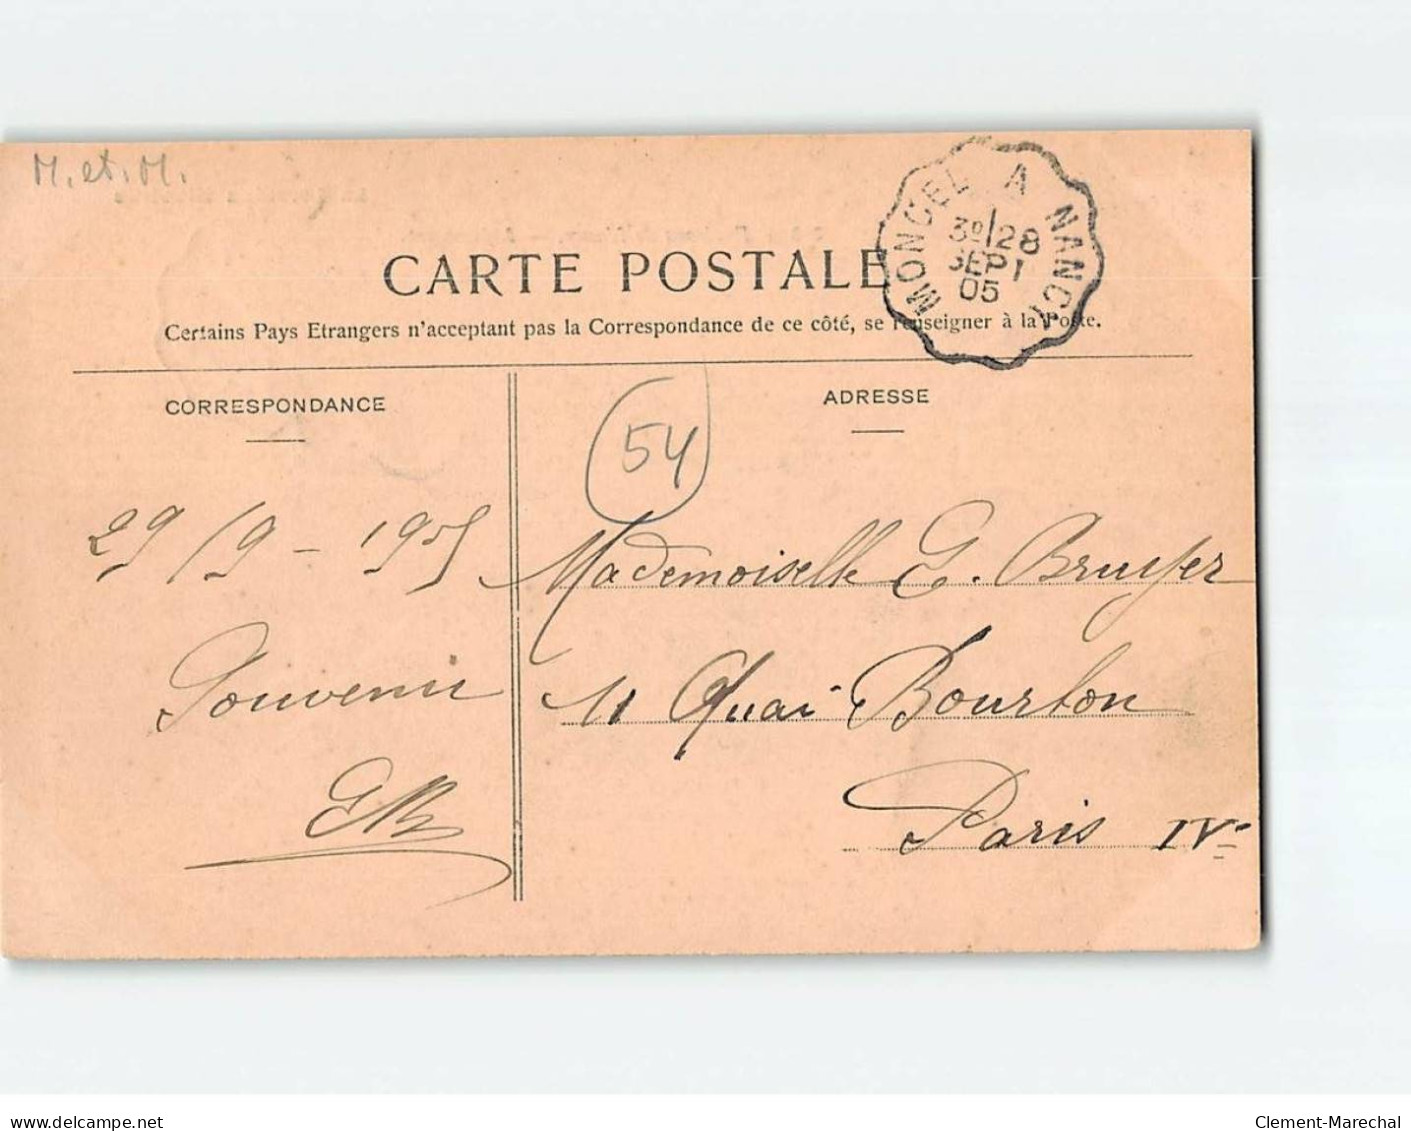 M. et. M.
MONCEL A NANCY
3º/28
SEPT
05
CARTE POSTALE
Certains Pays Etrangers n'acceptant pas la Correspondance de ce côté, se renseigner à la Poste.
CORRESPONDANCE
ADRESSE
54
29/9 - 1905
Souvenir
Mademoiselle G. Bruyer
11 Quai Bourbon
Paris IVe
delcampe.net
Clement-Marechal